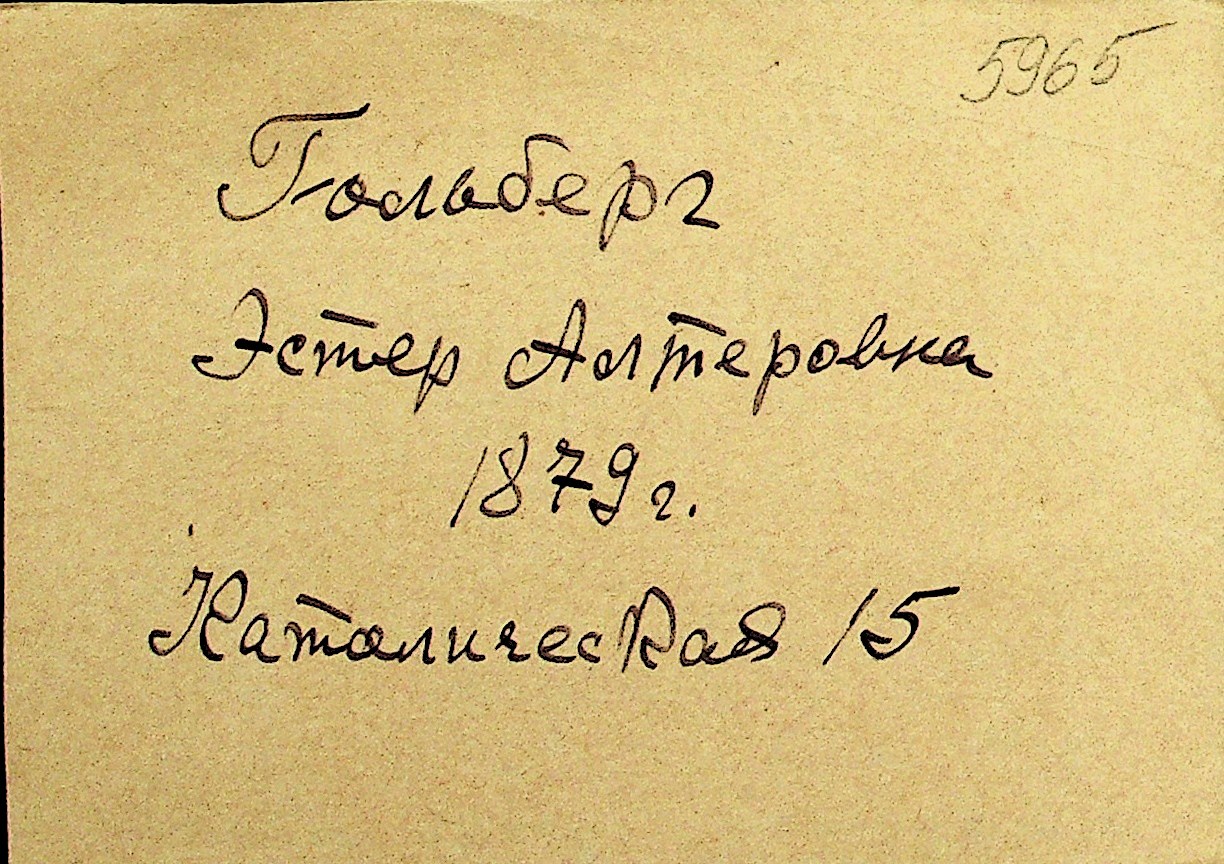 5965
Гольберг
Эстер Алтеровна
1879 г.
Католическая 15